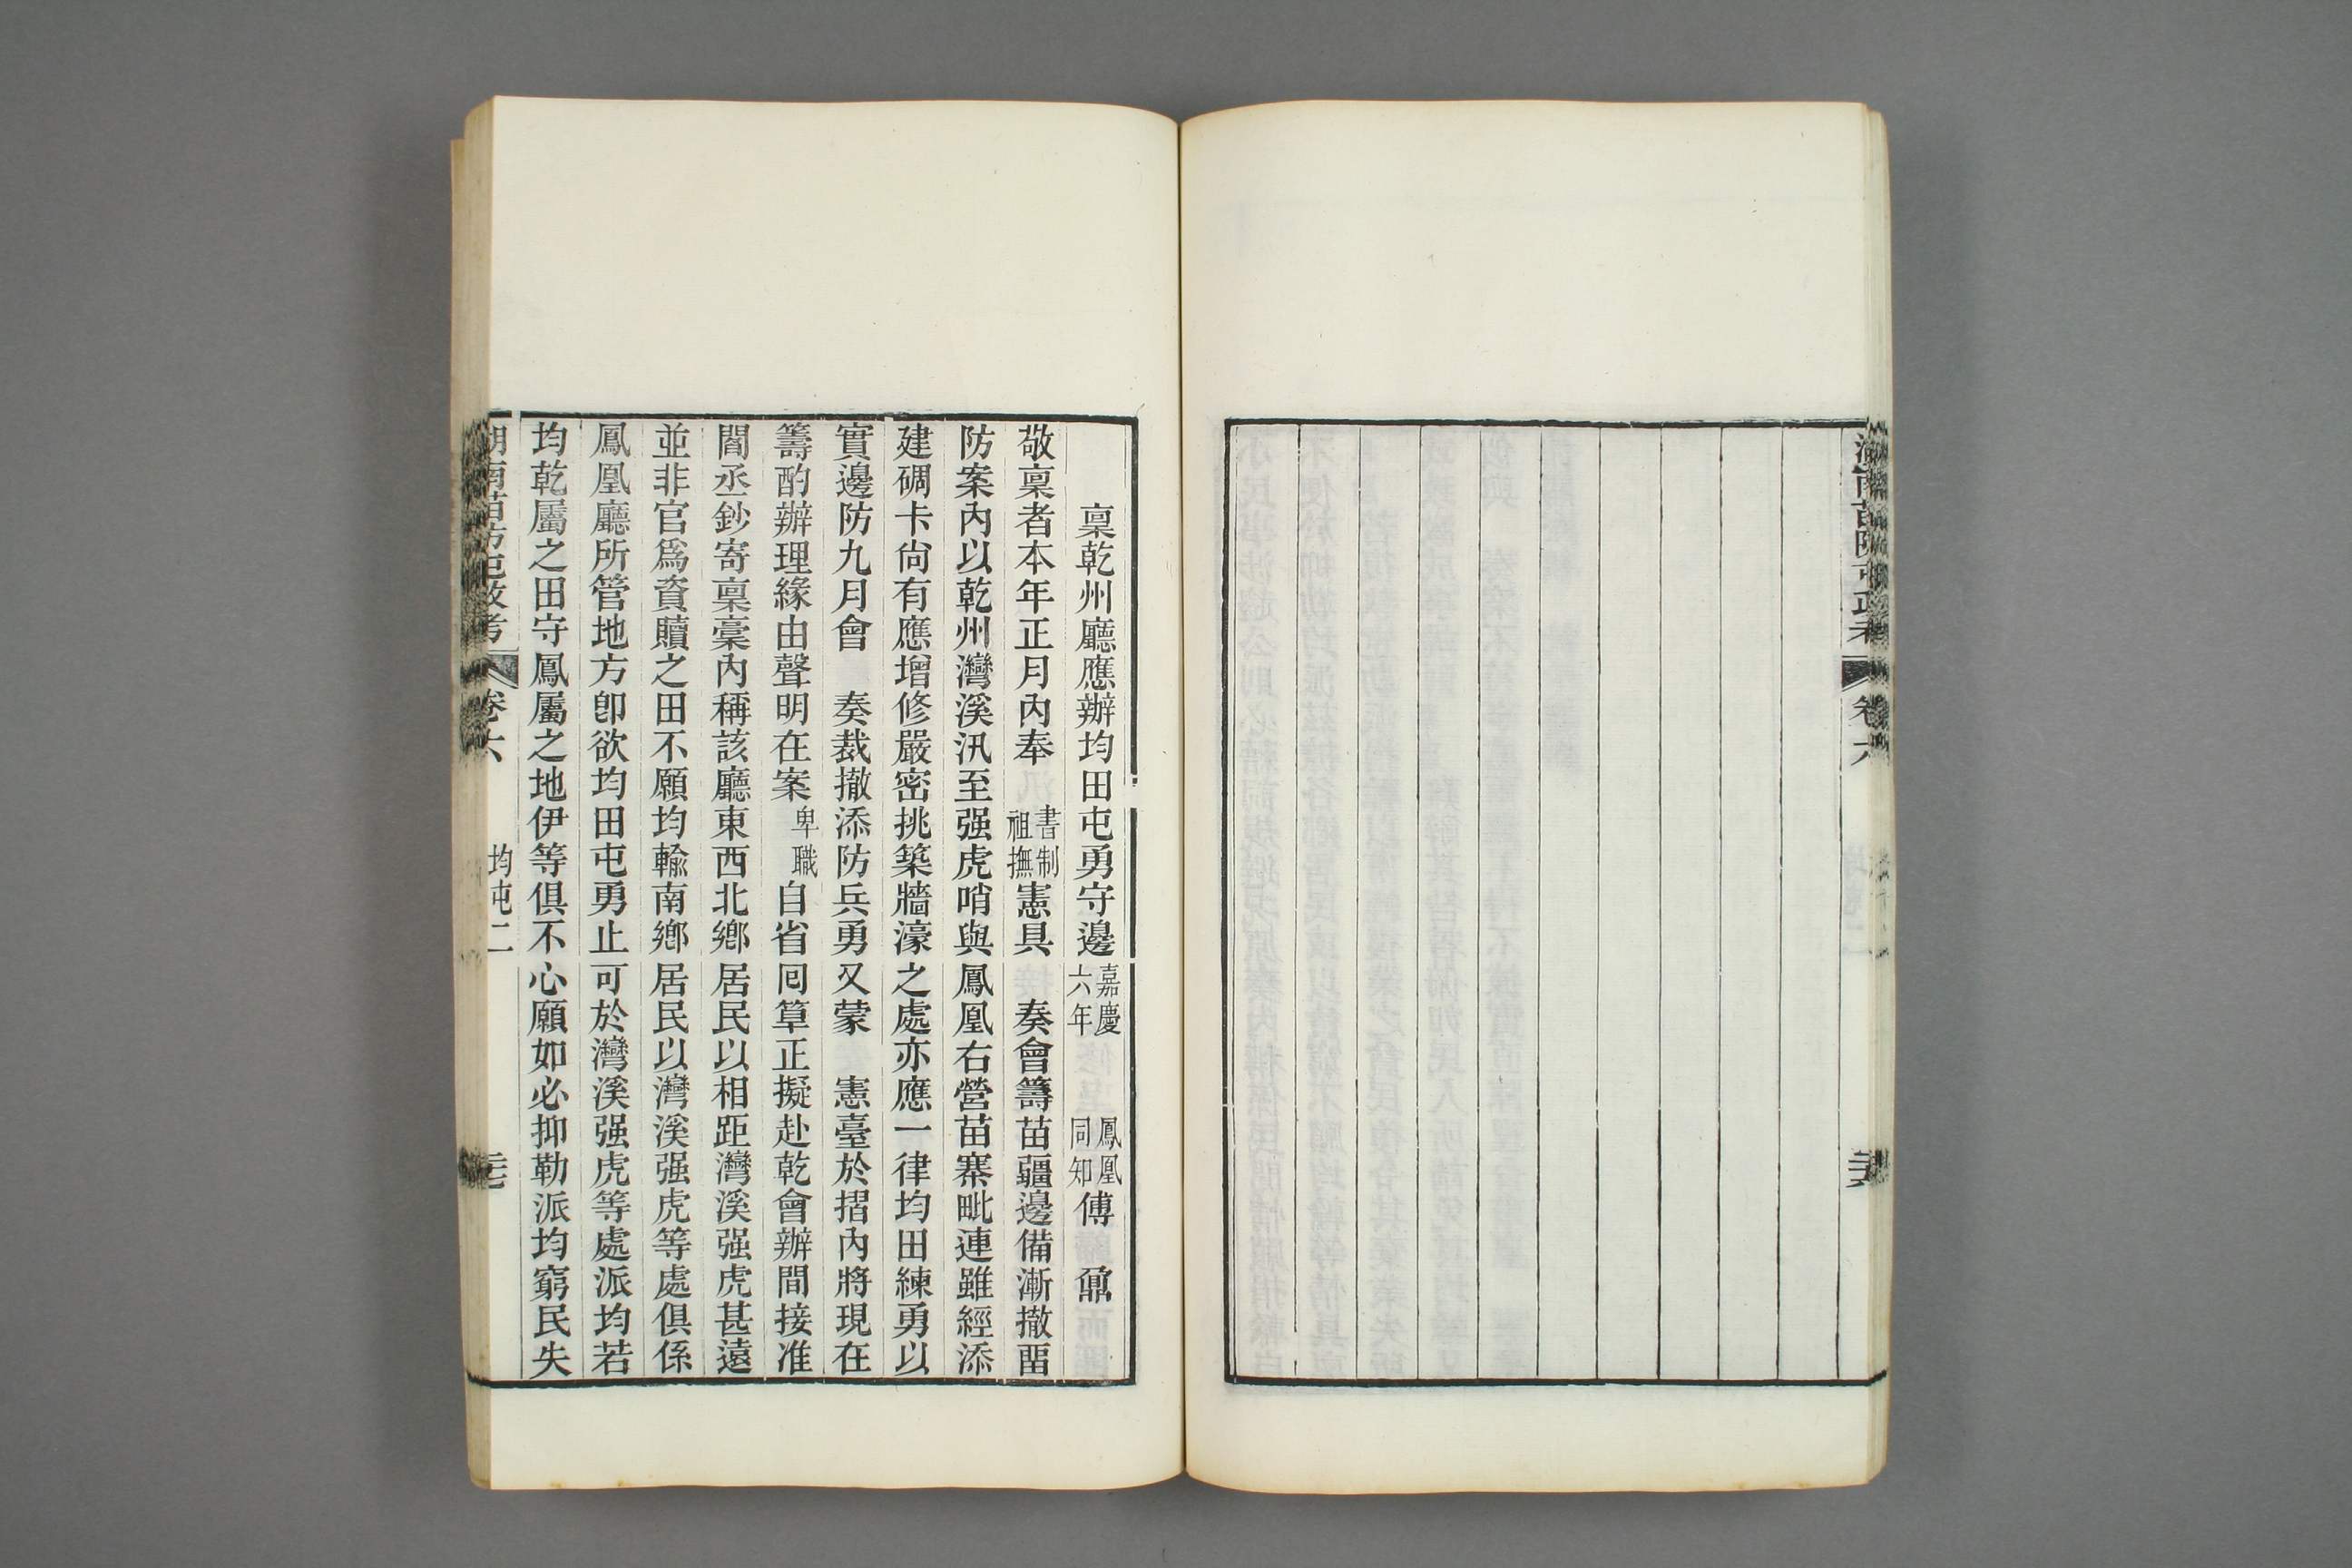 湖南苗防屯政考 卷六 三六
稟乾州廳應辦均田屯勇守邊 嘉慶六年 鳳凰同知 傅鼐
敬稟者本年正月內奉 書制祖撫憲具 奏會籌苗疆邊備漸撤畱
防案內以乾州灣溪汛至强虎哨與鳳凰右營苗寨毗連雖經添
建碉卡尙有應增修嚴密挑築牆濠之處亦應一律均田練勇以
實邊防九月會 奏裁撤添防兵勇又蒙 憲臺於摺內將現在
籌酌辦理緣由聲明在案 卑職 自省囘筸正擬赴乾會辦間接准
閻丞鈔寄稟稾內稱該廳東西北鄉居民以相距灣溪强虎甚遠
並非官爲資贖之田不願均輸南鄉居民以灣溪强虎等處俱係
鳳凰廳所管地方卽欲均田屯勇止可於灣溪强虎等處派均若
均乾屬之田守鳳屬之地伊等俱不心願如必抑勒派均窮民失
湖南苗防屯政考 卷六 均屯二 三七